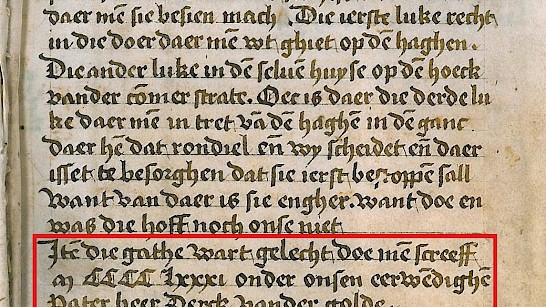 daer mē sie besien mach. Die ierste luke recht
in die doer daer mē wt ghiet op dē haghen.
Die ander luke in dē seluen huyse op den hoeck
vander cōmer strate. Oec is daer die derde lu
ke daer mē in tret vā dē haghen in den ganc
daer hē dat rondiel en̄ wy scheidet en̄ daer
isset te besorghen dat sie ierst bestoppen sall
Want van daer is sie engher. want doe en
was die hoff noch onse niet
Itē die gathe wart gelecht doe mē screeff
m CCCC lxxxi onder onsen eerwēdighē
Pater heer Derck vander golde